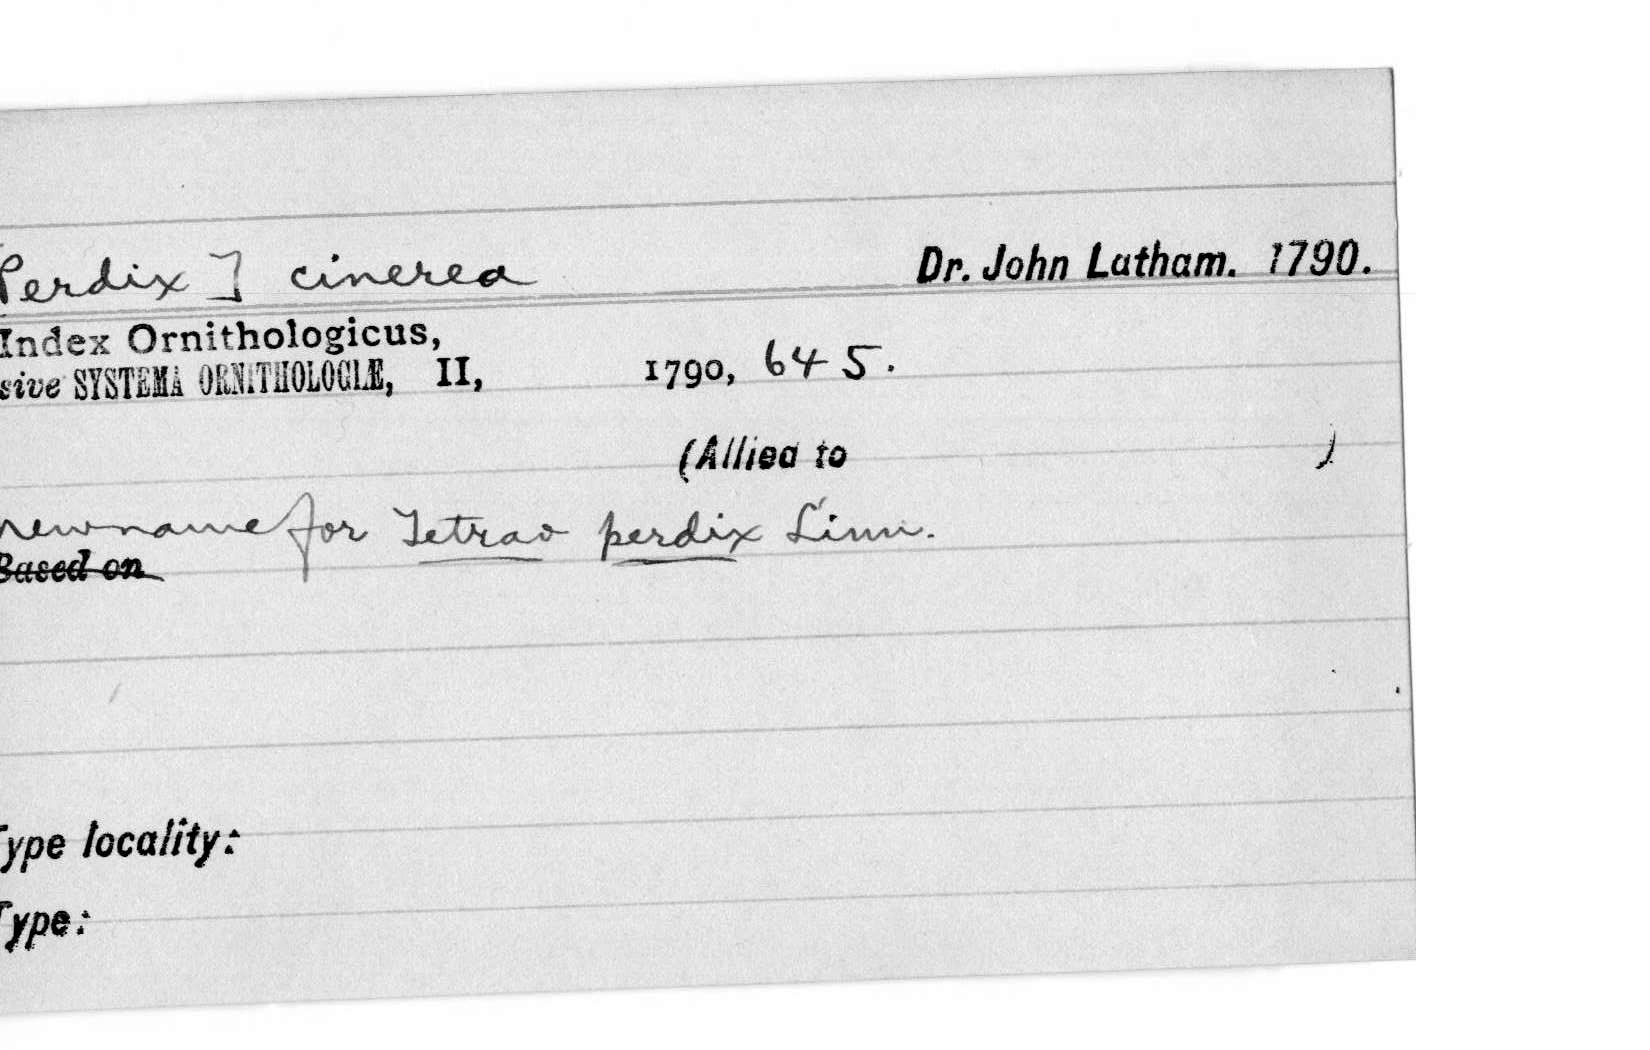 [Perdix] cinerea Dr. John Latham. 1790.
Index Ornithologicus,
sive SYSTEMA ORNITHOLOGIÆ, II, 1790, 645.
(Allied to )
new name for Tetrao perdix Linn.
Based on
Type locality:
Type: